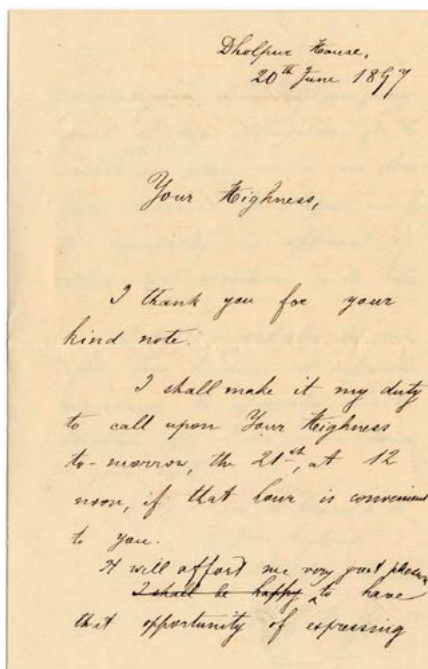 Dholpur House,
20th June 1897
Your Highness,
I thank you for your
kind note.
I shall make it my duty
to call upon Your Highness
to-morrow, the 21st, at 12
noon, if that hour is convenient
to you.
It will afford me very great pleasure
I shall be happy ^ to have
that opportunity of expressing